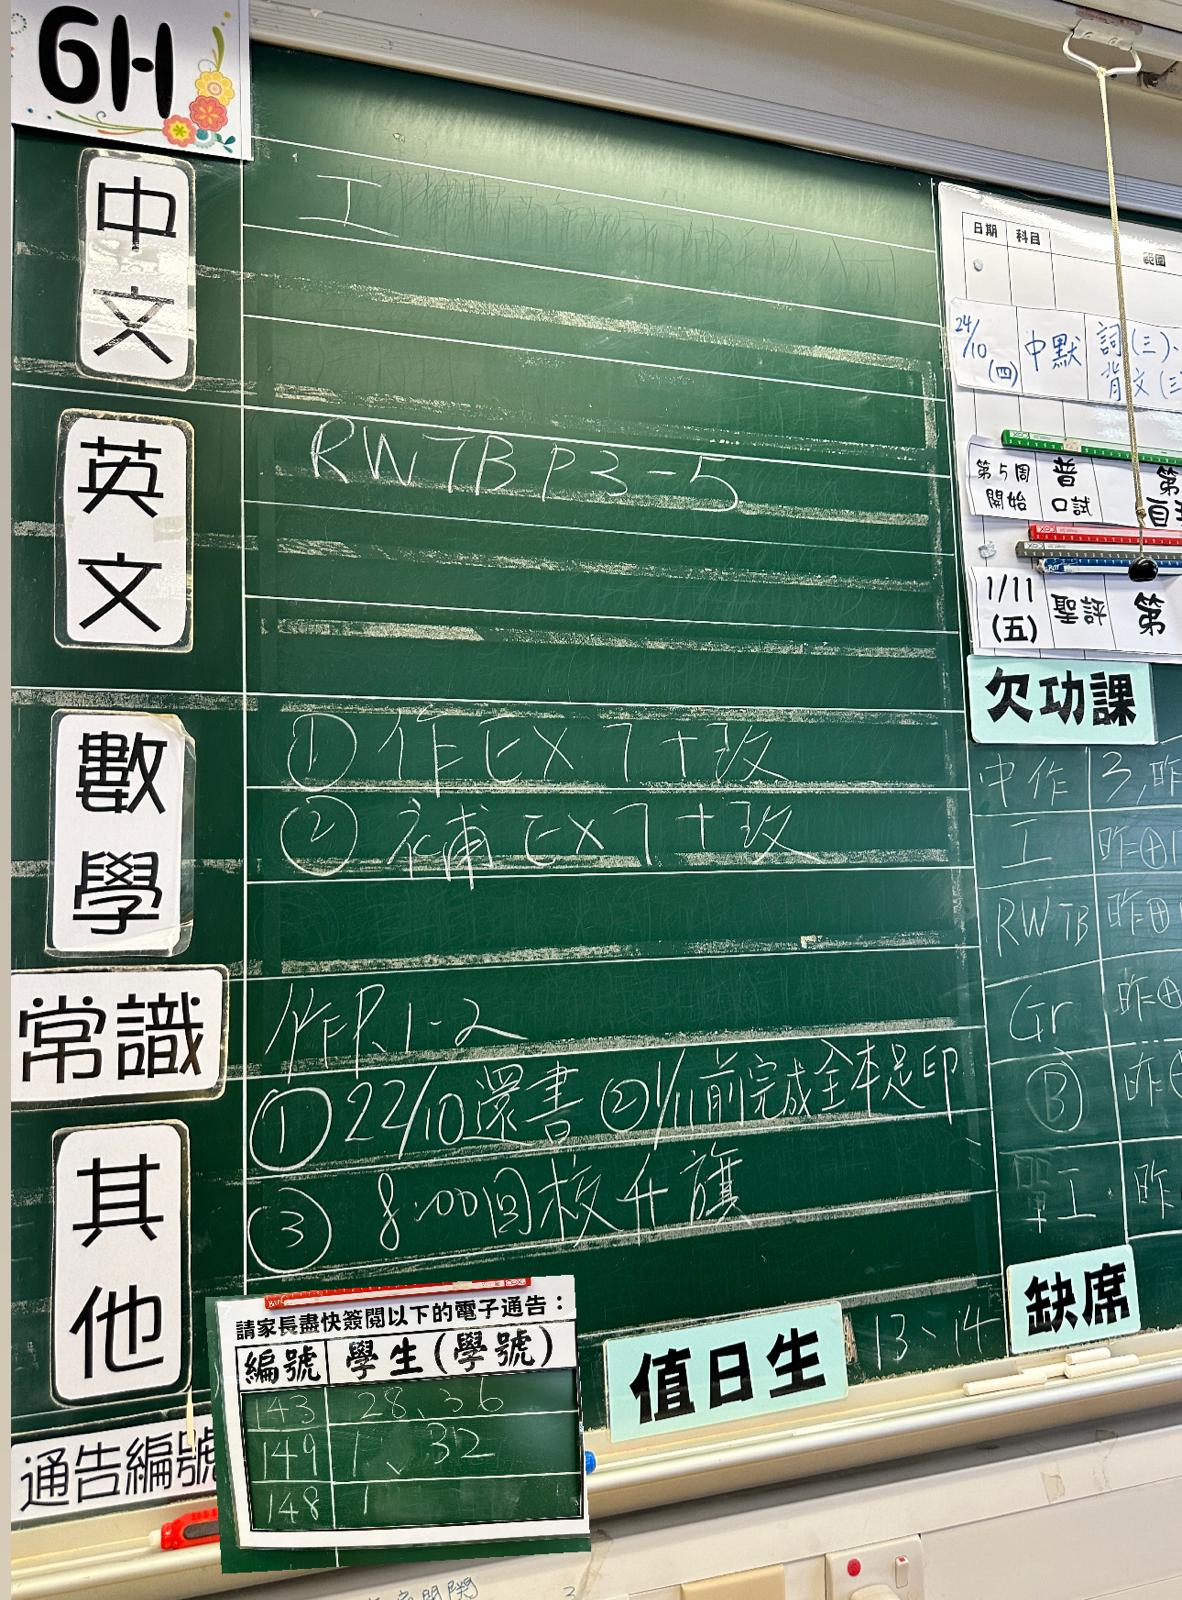 6H
中文
工
英文
RWTB P3-5
數學
① 作Ex7+改
② 補Ex7+改
常識
作P.1-2
其他
① 22/10還書 ② 1/11前完成全本足印
③ 8:00回校升旗
請家長盡快簽閱以下的電子通告：
編號 學生(學號)
143 28、36
149 1、32
148 1
通告編號
值日生 13、14
缺席
日期 科目 範圍
24/10 (四) 中默 詞(三)、
背文(三
第5周開始 普口試 第
1/11 (五) 聖評 第
欠功課
中作 13,昨
工 昨⊕1
RWTB 昨⊕
Gr 昨⊕
Ⓑ 昨
單工 昨